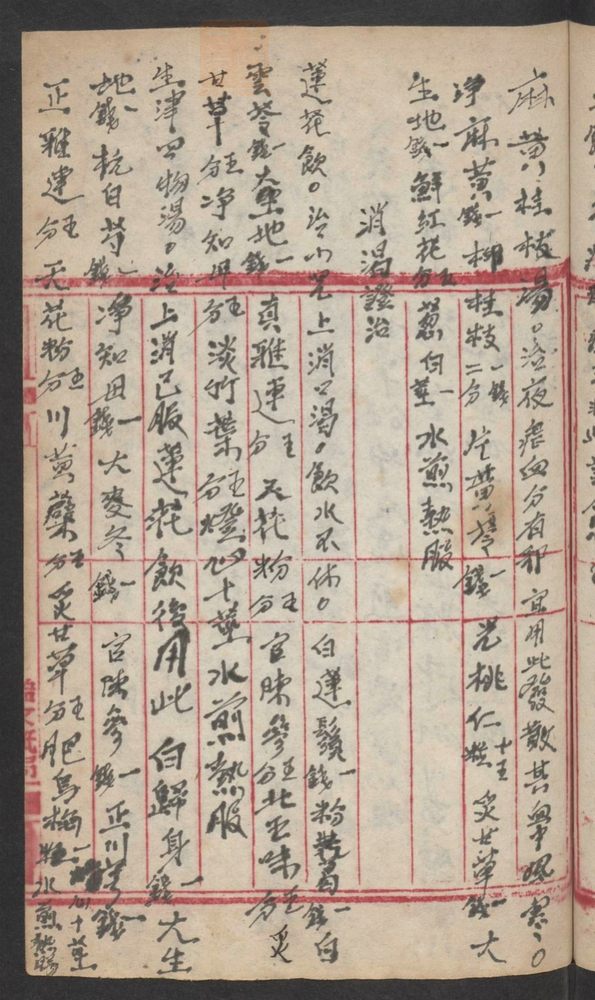 麻黄桂枝湯。治夜瘧血分有邪宜用此發散其血中風寒。
净麻黄一錢 柳桂枝一錢二分 片黄芩一錢 光桃仁十五粒 炙甘草一錢 大
生地一錢 鮮紅花五分 葱白一莖 水煎熱服
消渴證治
蓮花飲。治小兒上消口渴。飲水不休。白蓮鬚一錢 粉葛一錢 白
雲苓一錢 大生地一錢 真雅連五分 天花粉五分 官陳參五分 北五味五分 炙
甘草五分 净知母五分 淡竹葉五分 燈心十莖 水煎熱服
生津四物湯。治上消已服蓮花飲後用此 白歸身一錢 大生
地一錢 杭白芍一錢 净知母一錢 大麥冬一錢 官陳參一錢 正川芎一錢
正雅連五分 天花粉五分 川黄蘗五分 炙甘草五分 肥烏梅一粒 燈心十莖 水煎熱服